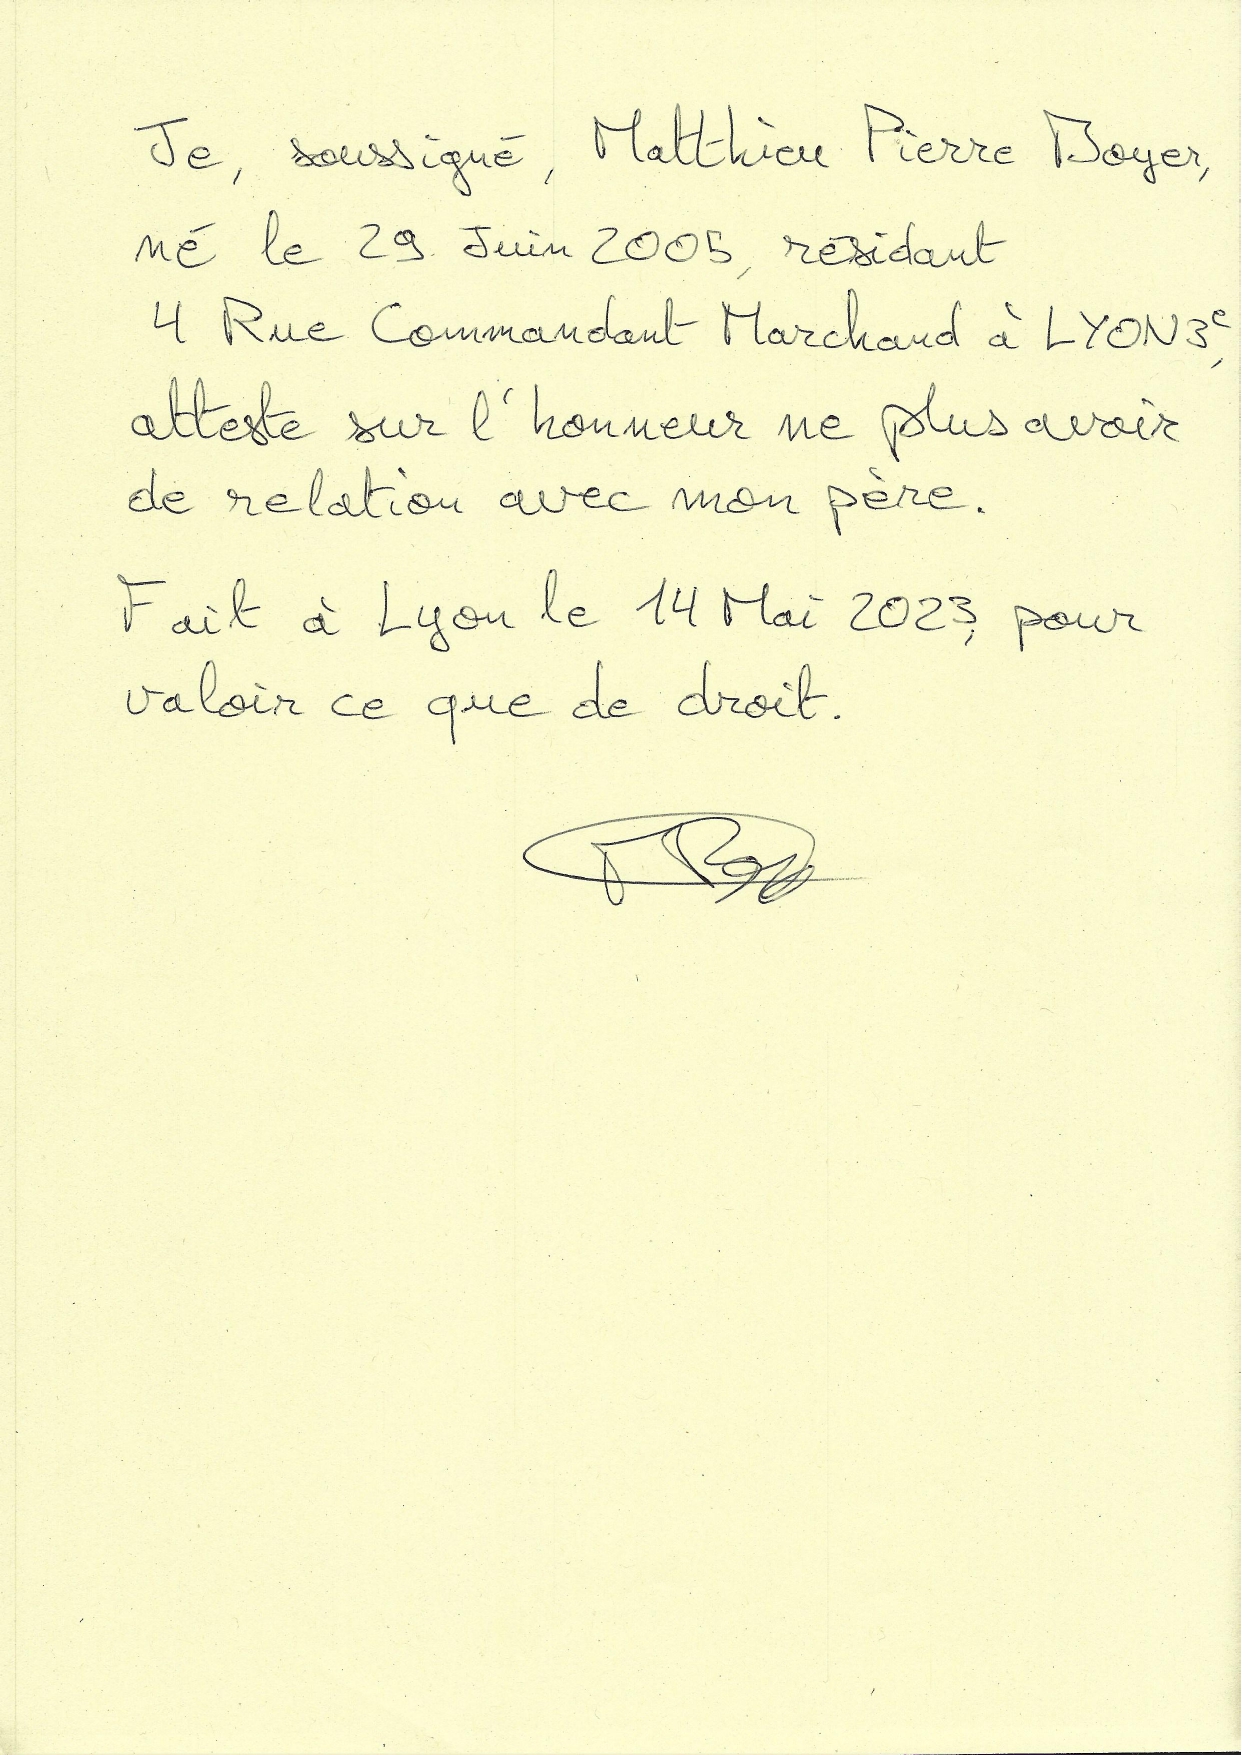 Je, soussigné, Matthieu Pierre Boyer,
né le 29 Juin 2005, résidant
4 Rue Commandant Marchand à LYON 3e,
atteste sur l'honneur ne plus avoir
de relation avec mon père.
Fait à Lyon le 14 Mai 2023, pour
valoir ce que de droit.